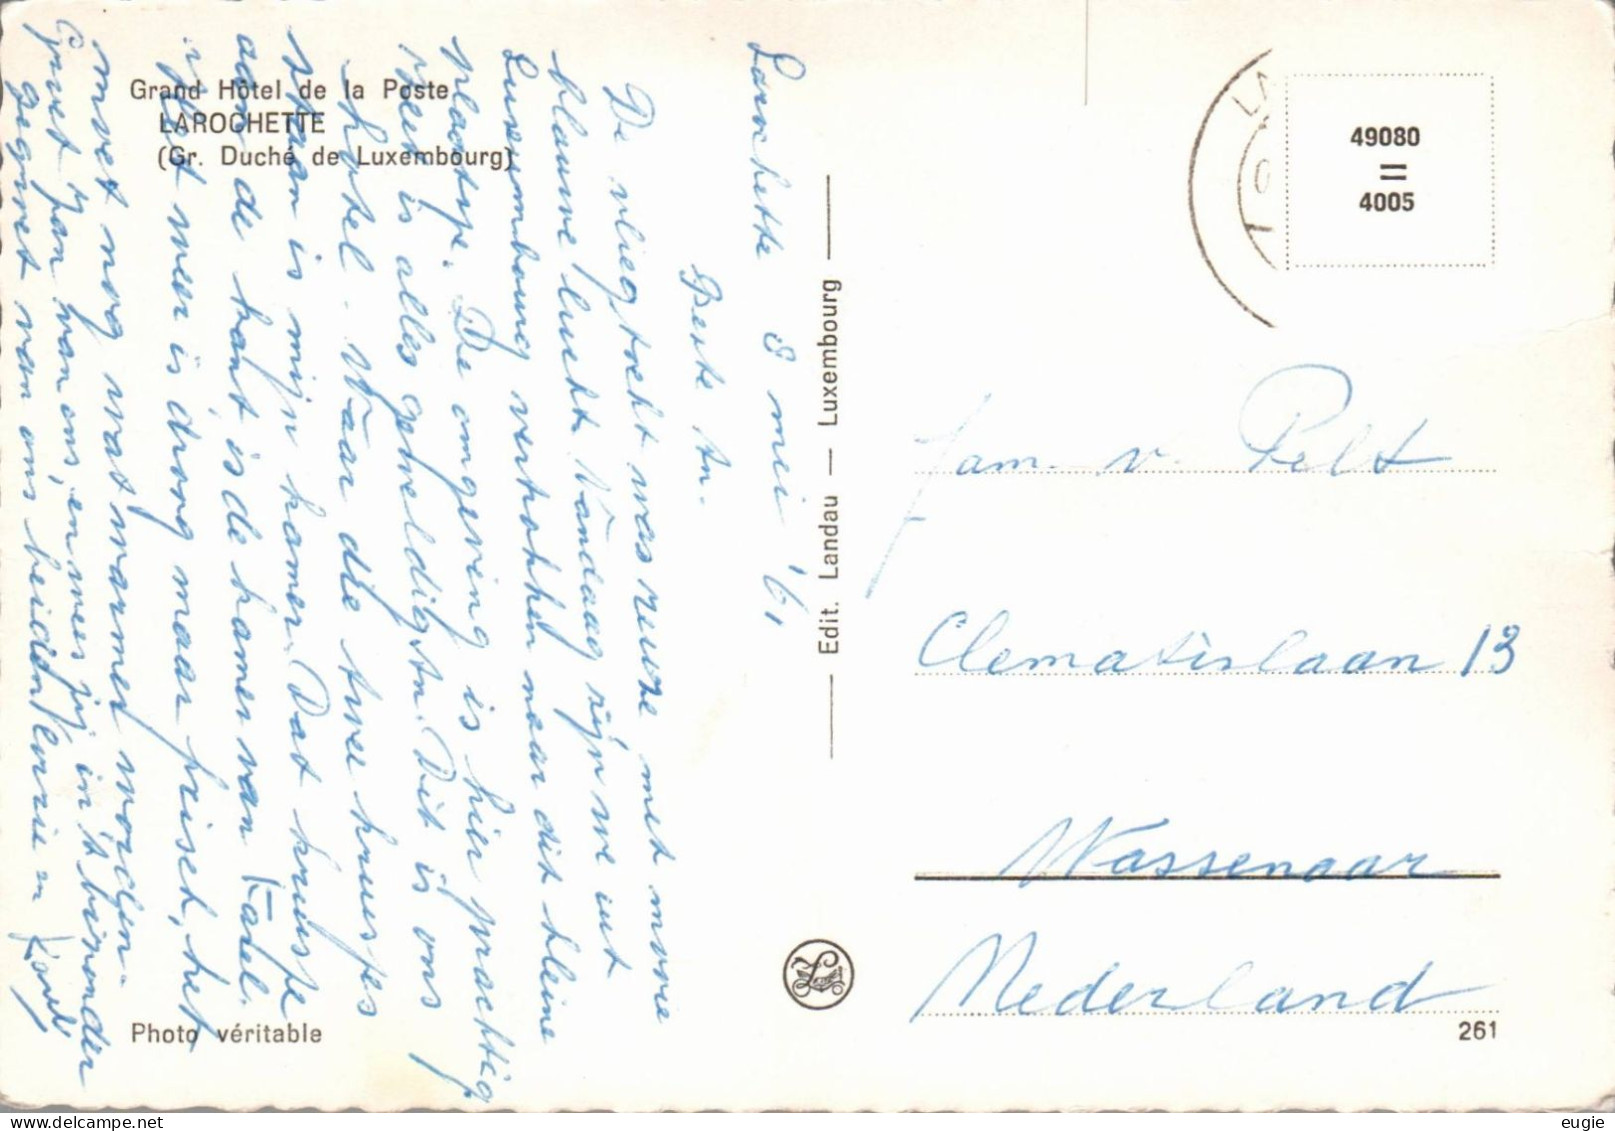 Grand Hôtel de la Poste
LAROCHETTE
(Gr. Duché de Luxembourg)
Larochette 8 mei '61
Beste An.
De vliegtocht was reuze met mooie
blauwe lucht. Vandaag zijn we uit
Luxembourg vertrokken naar dit kleine
plaatsje. De omgeving is hier prachtig
is alles geweldig An. Dit is ons
hotel. Waar die twee kruisjes
staan is mijn kamer. Dat kruisje
aan de kant is de kamer van
Het weer is droog maar frisch, het
moet nog wat warmer worden.
Groet Jan van ons, en wees jij in 't bizonder
gegroet van ons beiden
Photo véritable
Edit. Landau — Luxembourg
49080
=
4005
Fam. v. Pelt
Clematislaan 13
Wassenaar
Nederland
261
delcampe.net
eugie